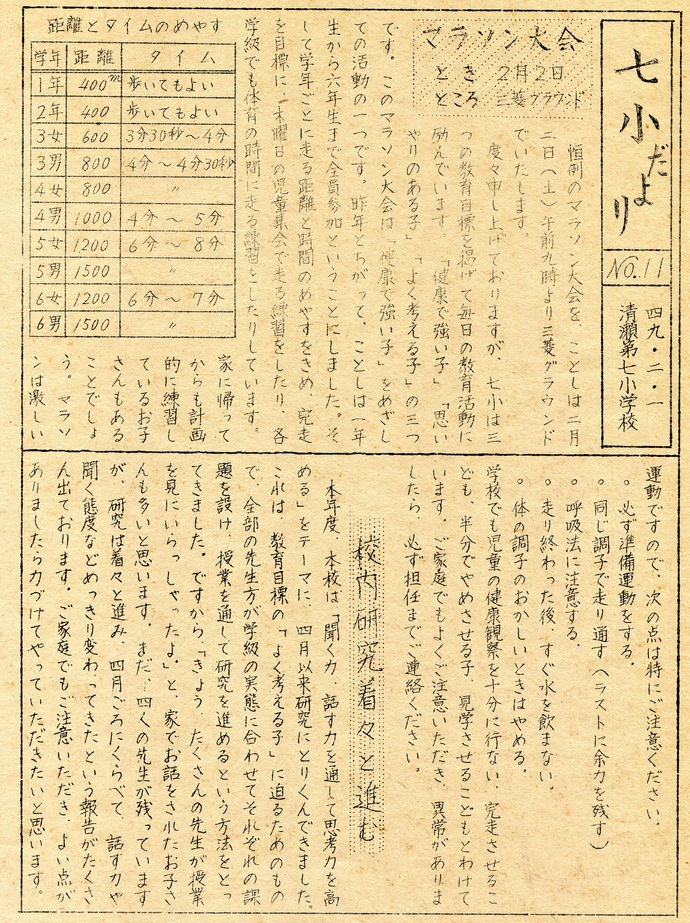 七小だより
NO.11
四九・二・一
清瀬第七小学校
マラソン大会
とき 2月2日
ところ 三菱グラウンド
恒例のマラソン大会を ことしは二月
二日(土)午前九時より三菱グラウンド
でいたします。
度々申し上げておりますが、七小は三
つの教育目標を掲げて毎日の教育活動に
励んでいます。「健康で強い子」「思い
やりのある子」「よく考える子」の三つ
です。このマラソン大会は「健康で強い子」をめざし
ての活動の一つです。昨年とちがって ことしは一年
生から六年生まで全員参加ということにしました。そ
して学年ごとに走る距離と時間のめやすをきめ、完走
を目標に、木曜日の児童集会で走る練習をしたり、各
学級でも体育の時間に走る練習をしたりしています。
距離とタイムのめやす
学年 距離 タイム
1年 400m 歩いてもよい
2年 400 歩いてもよい
3女 600 3分30秒～4分
3男 800 4分～4分30秒
4女 800 〃
4男 1000 4分～5分
5女 1200 6分～8分
5男 1500 〃
6女 1200 6分～7分
6男 1500 〃
家に帰って
からも計画
的に練習し
ているお子
さんもある
ことでしょ
う。マラソ
ンは激しい
運動ですので、次の点は特にご注意ください。
○ 必ず準備運動をする。
○ 同じ調子で走り通す(ラストに余力を残す)
○ 呼吸法に注意する。
○ 走り終わった後、すぐ水を飲まない。
○ 体の調子のおかしいときはやめる。
学校でも児童の健康観察を十分に行ない、完走させるこ
ども、半分でやめさせる子、見学させるこどもとわけて
います。ご家庭でもよくご注意いただき、異常がありま
したら、必ず担任までご連絡ください。
校内研究着々と進む
本年度、本校は「聞く力、話す力を通して思考力を高
める」をテーマに、四月以来研究にとりくんできました。
これは、教育目標の「よく考える子」に迫るためのもの
で、全部の先生方が学級の実態に合わせてそれぞれの課
題を設け、授業を通して研究を進めるという方法をとっ
てきました。ですから、「きょう たくさんの先生が授業
を見にいらっしゃったよ。」と、家でお話をされたお子さ
んも多いと思います。まだ、四くの先生が残っています
が、研究は着々と進み、四月ごろにくらべて、話す力や
聞く態度などめっきり変わってきたという報告がたくさ
ん出ております。ご家庭でもご注意いただき、よい点が
ありましたら力づけてやっていただきたいと思います。